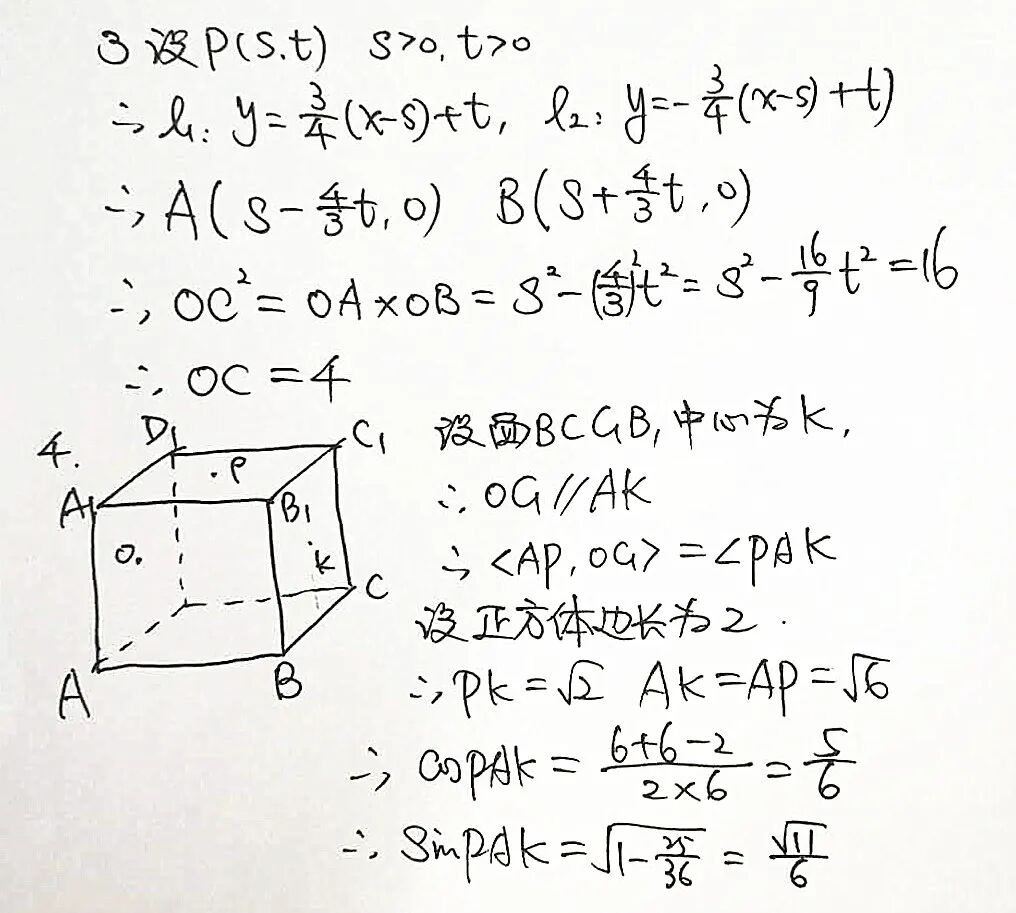 3 设P(S,t) S>0, t>0
∴ l₁: y=\frac{3}{4}(x-s)+t, l₂: y=-\frac{3}{4}(x-s)+t)
∴ A(S-\frac{4}{3}t,0) B(S+\frac{4}{3}t,0)
∴ OC²=OA×OB=S²-(\frac{4}{3})²t²=S²-\frac{16}{9}t²=16
∴ OC=4
4.
D₁
C₁
P
A₁
B₁
O.
K
C
A
B
设面BCC₁B₁中心为K,
∴ OC₁//AK
∴ <AP,OC₁>=∠PAK
设正方体边长为2.
∴ PK=√2 AK=AP=√6
∴ cosPAK=\frac{6+6-2}{2×6}=\frac{5}{6}
∴ SinPAK=\sqrt{1-\frac{25}{36}}=\frac{√11}{6}